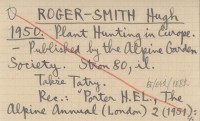 ROGER-SMITH Hugh
1950. Plant Hunting in Europe.
- Published by the Alpine Garden
Society. Stron 80, il.
Także Tatry.
Rec.: Porter H.EL., The
Alpine Annual (London) 2 (1951):